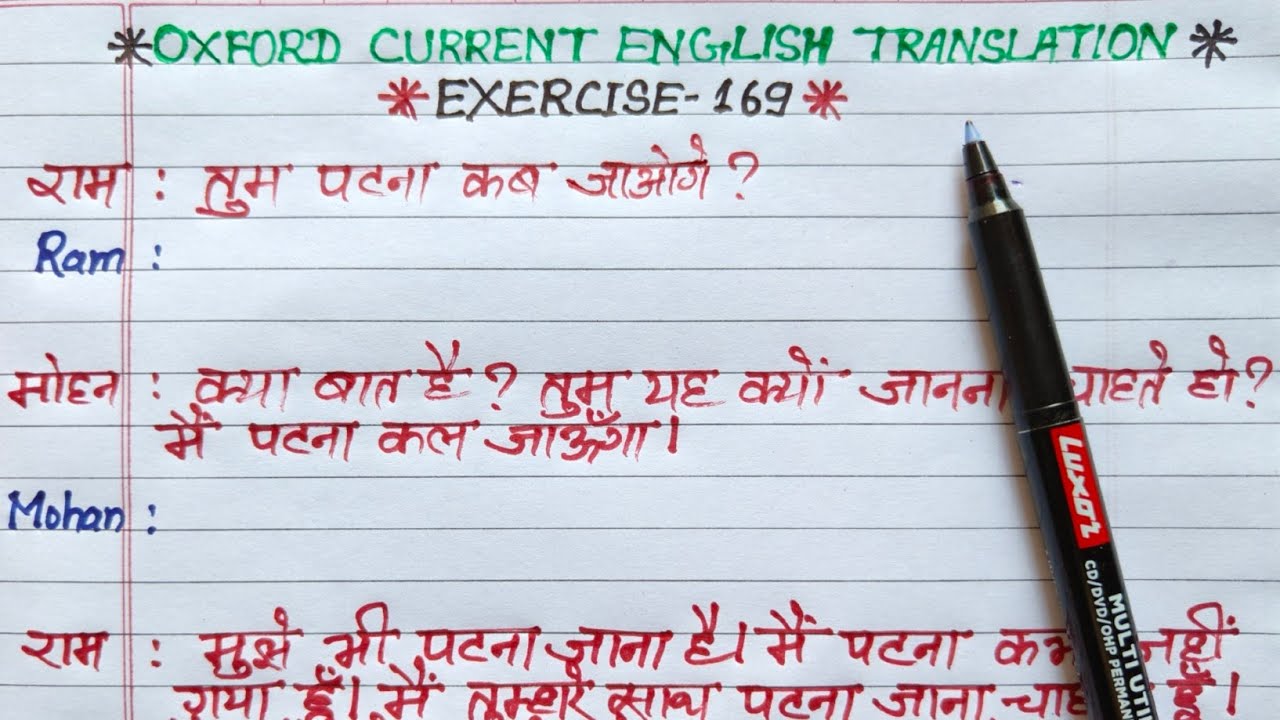 *OXFORD CURRENT ENGLISH TRANSLATION*
*EXERCISE-169*
राम : तुम पटना कब जाओगे?
Ram :
मोहन : क्या बात है? तुम यह क्यों जानना चाहते हो?
मैं पटना कल जाऊँगा।
Mohan :
राम : मुझे भी पटना जाना है। मैं पटना कभी नहीं
गया हूँ। मैं तुम्हारे साथ पटना जाना हूँ।
LUXOR
MULTI
CD/DVD/OHP